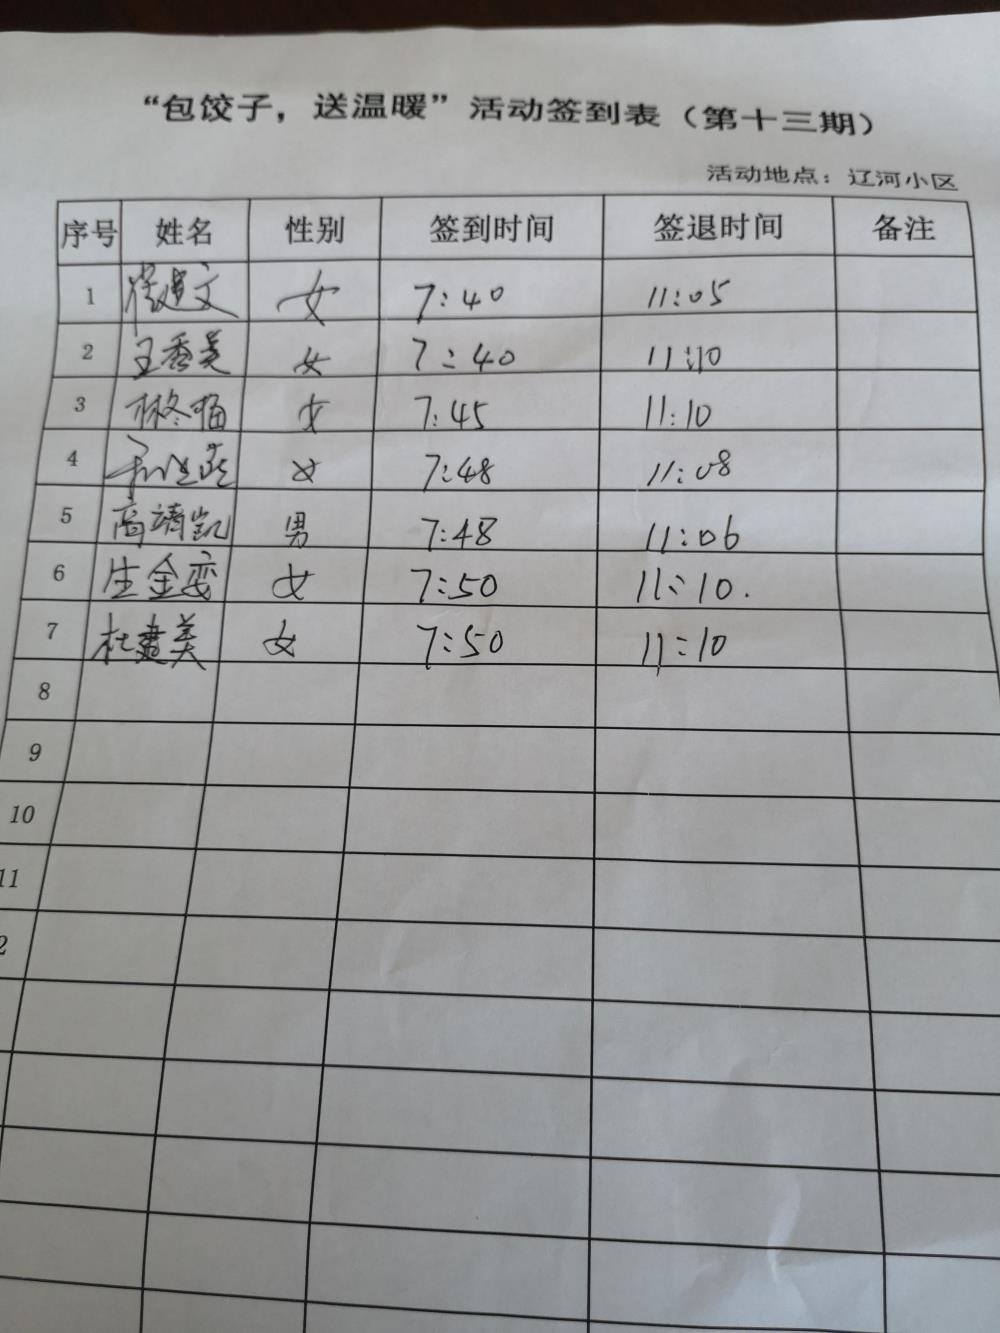 “包饺子，送温暖”活动签到表（第十三期）
活动地点：辽河小区
序号 姓名 性别 签到时间 签退时间 备注
1 崔建文 女 7:40 11:05
2 王秀美 女 7:40 11:10
3 女 7:45 11:10
4 女 7:48 11:08
5 高靖凯 男 7:48 11:06
6 生金峦 女 7:50 11:10.
7 杜建美 女 7:50 11:10
8
9
10
11
2